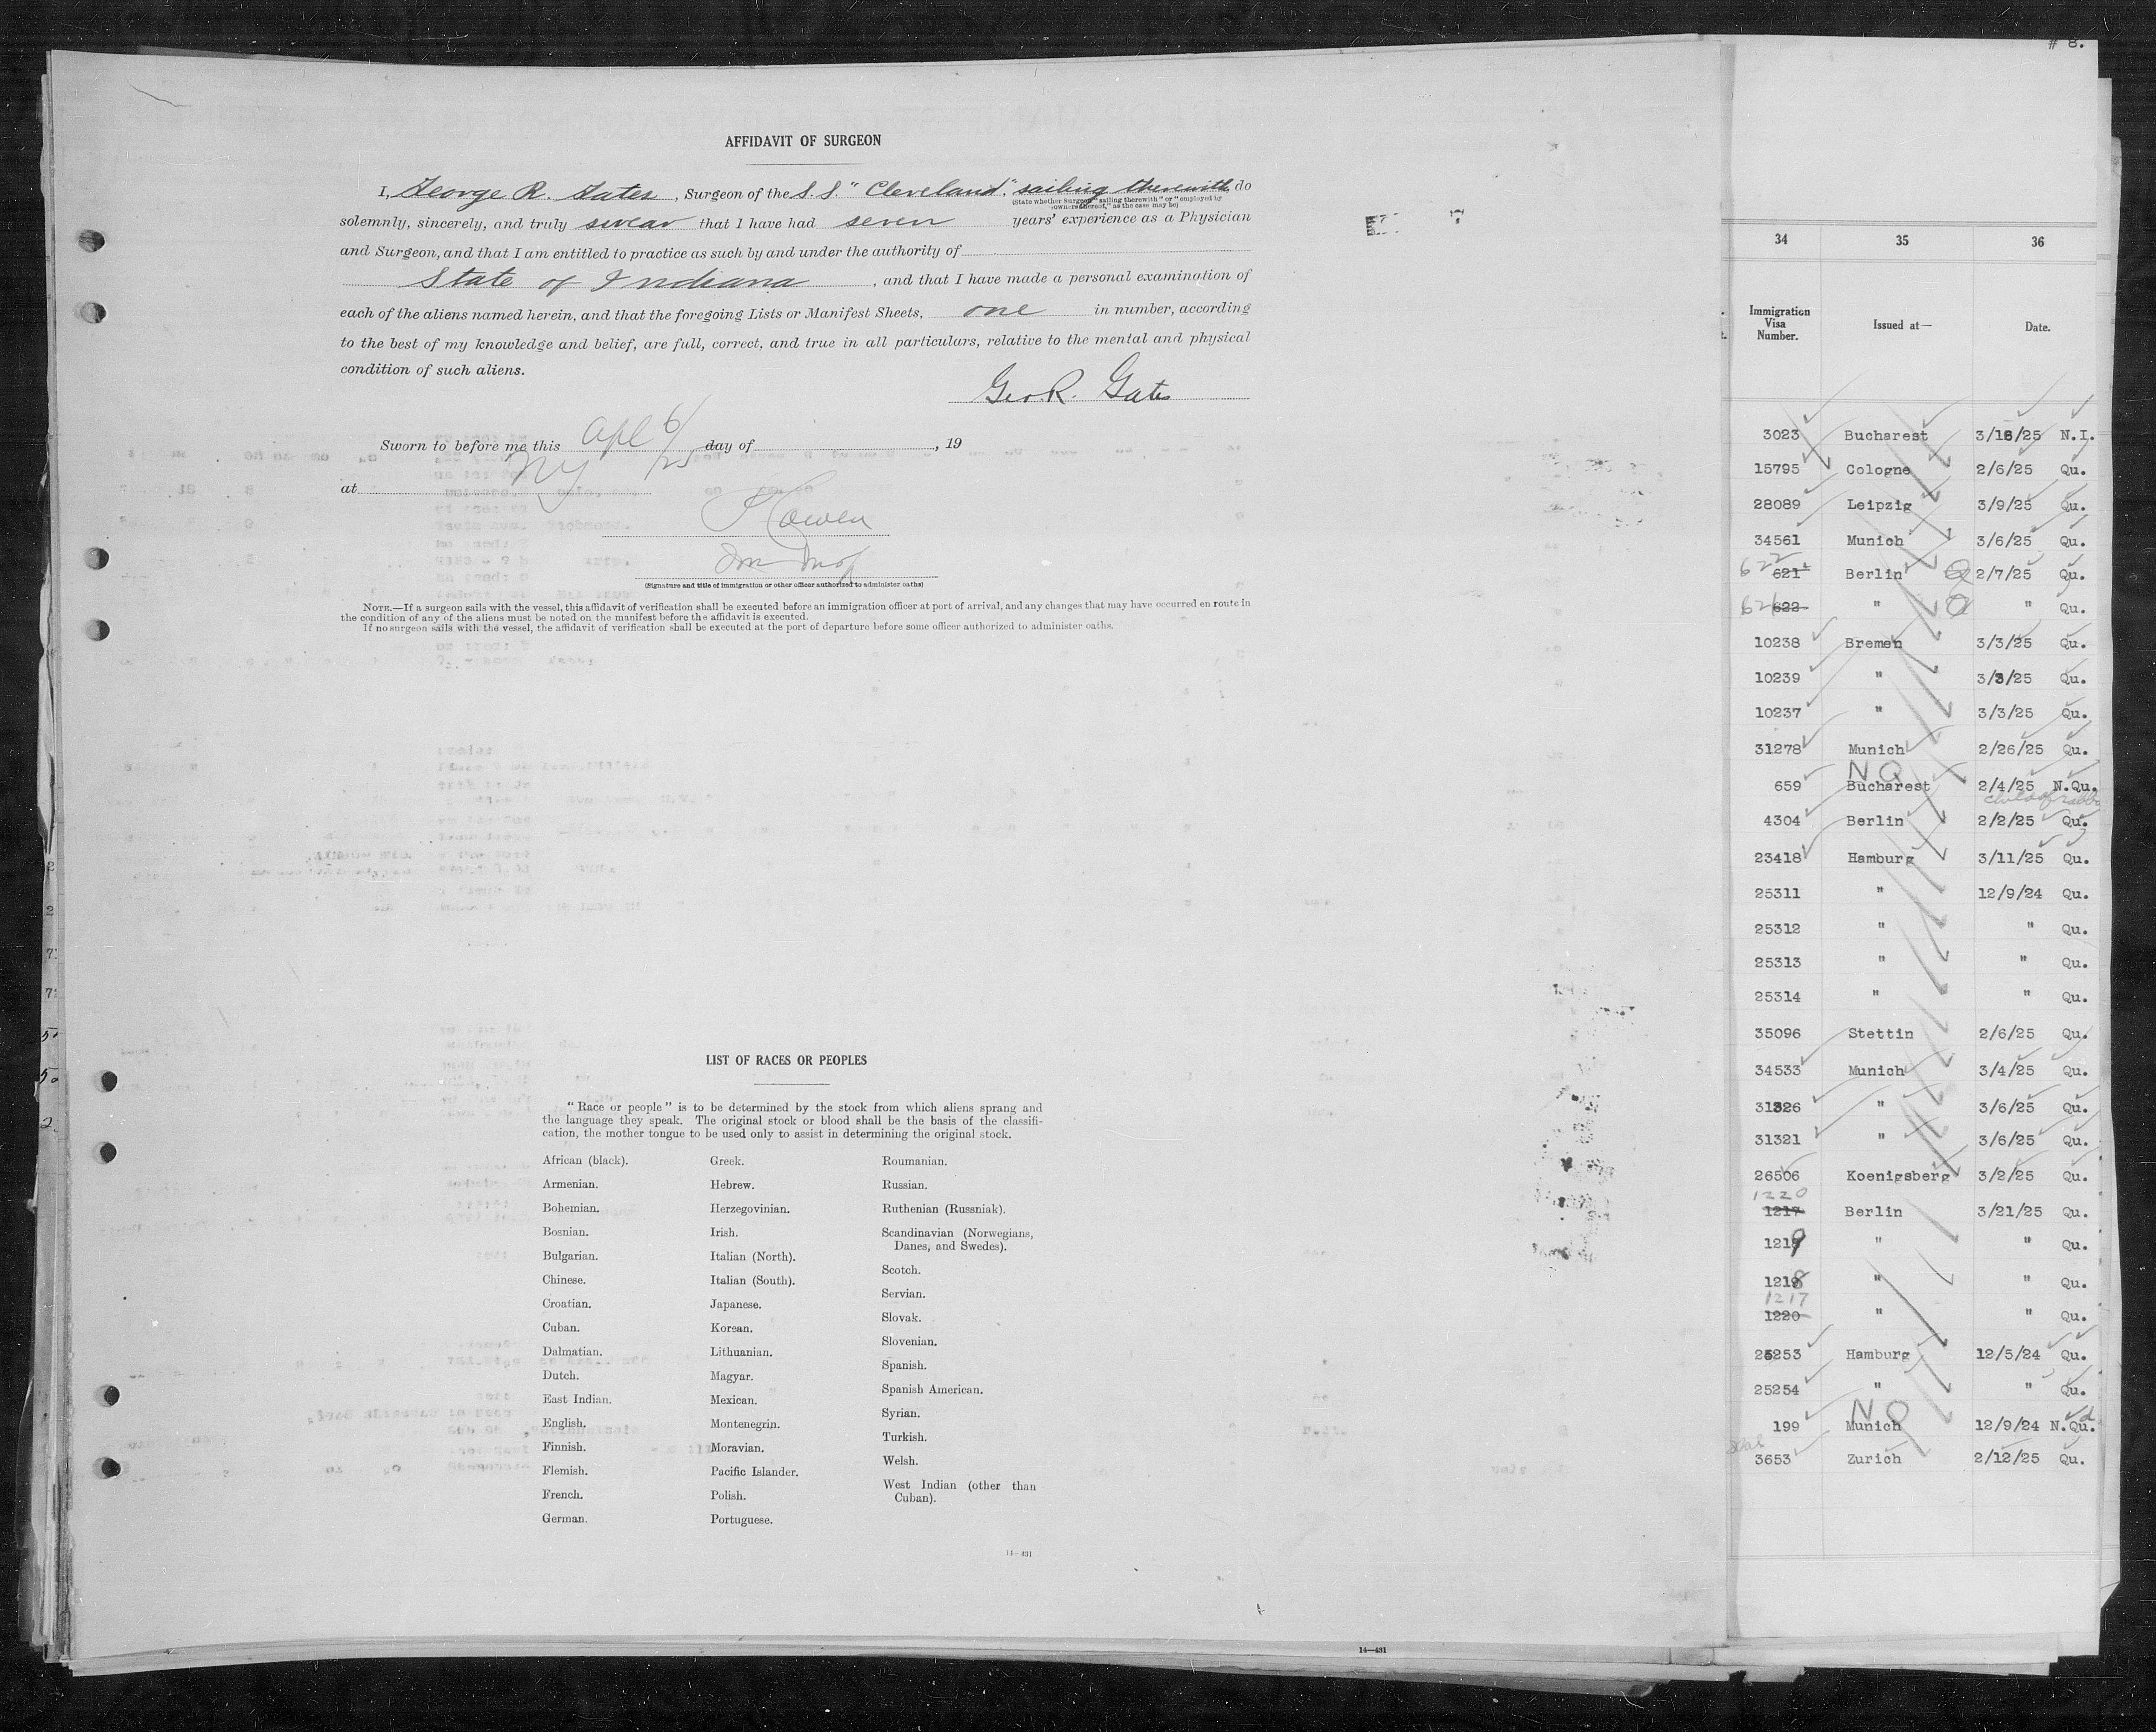 AFFIDAVIT OF SURGEON
I, George R. Gates, Surgeon of the S.S. "Cleveland", sailing therewith, do
(State whether Surgeon "sailing therewith" or "employed by
owners thereof," as the case may be)
solemnly, sincerely, and truly swear that I have had seven years' experience as a Physician
and Surgeon, and that I am entitled to practice as such by and under the authority of
State of Indiana, and that I have made a personal examination of
each of the aliens named herein, and that the foregoing Lists or Manifest Sheets, one in number, according
to the best of my knowledge and belief, are full, correct, and true in all particulars, relative to the mental and physical
condition of such aliens.
Geo. R. Gates
Sworn to before me this Apl 6/25 day of , 19
at NY
(Signature and title of immigration or other officer authorized to administer oaths)
NOTE.—If a surgeon sails with the vessel, this affidavit of verification shall be executed before an immigration officer at port of arrival, and any changes that may have occurred en route in
the condition of any of the aliens must be noted on the manifest before the affidavit is executed.
If no surgeon sails with the vessel, the affidavit of verification shall be executed at the port of departure before some officer authorized to administer oaths.
LIST OF RACES OR PEOPLES
"Race or people" is to be determined by the stock from which aliens sprang and
the language they speak. The original stock or blood shall be the basis of the classifi-
cation, the mother tongue to be used only to assist in determining the original stock.
African (black).
Armenian.
Bohemian.
Bosnian.
Bulgarian.
Chinese.
Croatian.
Cuban.
Dalmatian.
Dutch.
East Indian.
English.
Finnish.
Flemish.
French.
German.
Greek.
Hebrew.
Herzegovinian.
Irish.
Italian (North).
Italian (South).
Japanese.
Korean.
Lithuanian.
Magyar.
Mexican.
Montenegrin.
Moravian.
Pacific Islander.
Polish.
Portuguese.
Roumanian.
Russian.
Ruthenian (Russniak).
Scandinavian (Norwegians,
Danes, and Swedes).
Scotch.
Servian.
Slovak.
Slovenian.
Spanish.
Spanish American.
Syrian.
Turkish.
Welsh.
West Indian (other than
Cuban).
14—431
14—431
# 8.
34 35 36
Immigration
Visa
Number.
Issued at—
Date.
3023 Bucharest 3/18/25 N.I.
15795 Cologne 2/6/25 Qu.
28089 Leipzig 3/9/25 Qu.
34561 Munich 3/6/25 Qu.
622 621 Berlin Q 2/7/25 Qu.
621 622 " Q " Qu.
10238 Bremen 3/3/25 Qu.
10239 " 3/3/25 Qu.
10237 " 3/3/25 Qu.
31278 Munich 2/26/25 Qu.
NQ
659 Bucharest 2/4/25 N.Qu.
4304 Berlin 2/2/25 Qu.
23418 Hamburg 3/11/25 Qu.
25311 " 12/9/24 Qu.
25312 " " Qu.
25313 " " Qu.
25314 " " Qu.
35096 Stettin 2/6/25 Qu.
34533 Munich 3/4/25 Qu.
31326 " 3/6/25 Qu.
31321 " 3/6/25 Qu.
26506 Koenigsberg 3/2/25 Qu.
1220
1217 Berlin 3/21/25 Qu.
1219 " " Qu.
1218 " " Qu.
1217
1220 " " Qu.
25253 Hamburg 12/5/24 Qu.
25254 " " Qu.
NQ
199 Munich 12/9/24 N.Qu.
3653 Zurich 2/12/25 Qu.